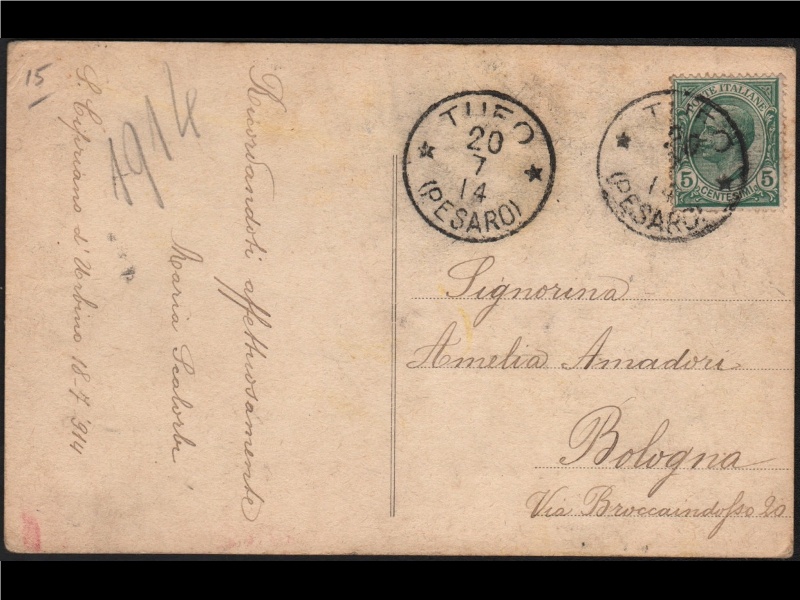 15
1914
S. Cipriano d'Urbino 18-7 914
Ricordandoti affettuosamente
Maria Scalorbi
TUFO
20
7
14
(PESARO)
TUFO
20
7
14
(PESARO)
POSTE ITALIANE
5 CENTESIMI 5
Signorina
Amelia Amadori
Bologna
Via Broccaindosso 20